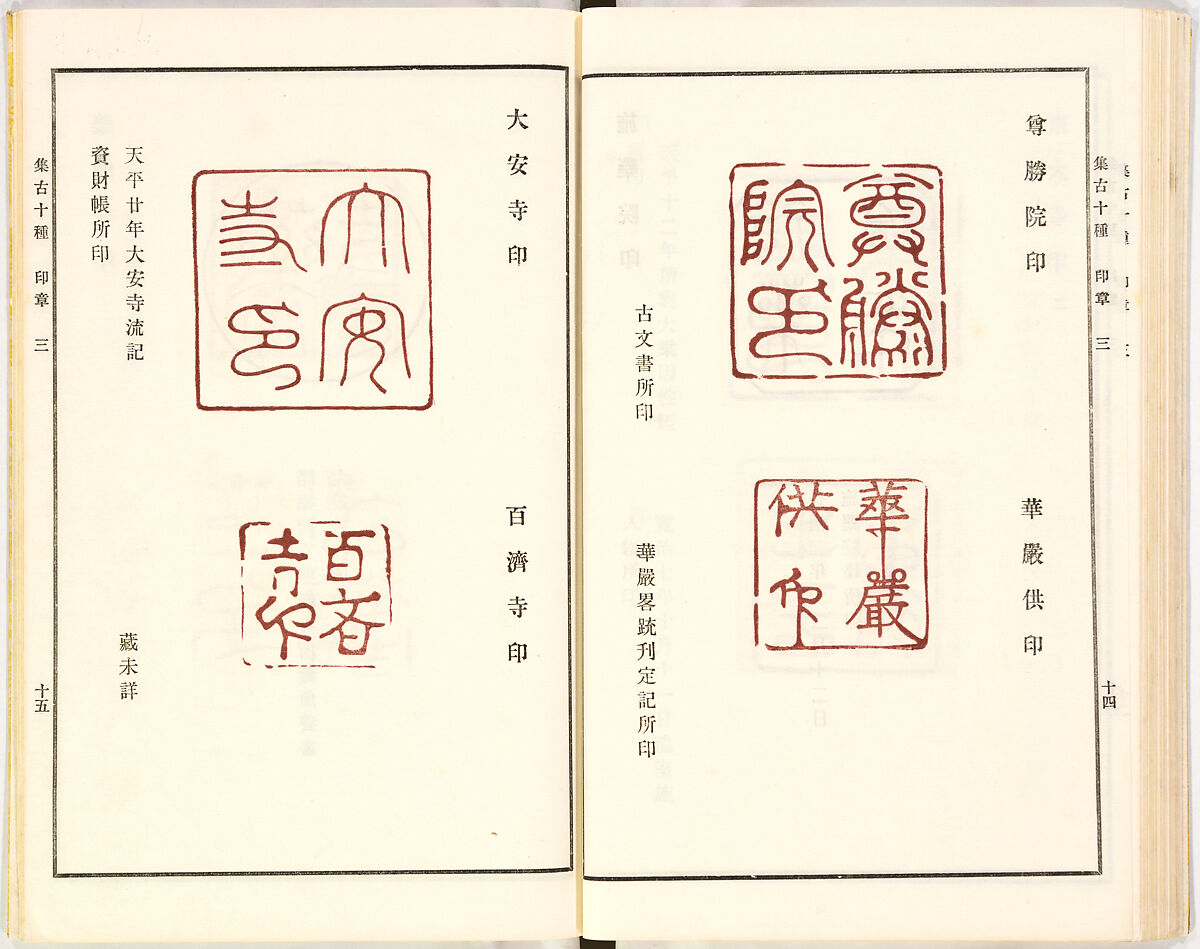 集古十種 印章 三
尊勝院印
尊勝
院印
古文書所印
華嚴供印
華嚴
供印
華嚴畧䟽刋定記所印
十四
大安寺印
大安
寺印
天平廿年大安寺流記
資財帳所印
百濟寺印
百济
寺印
藏未詳
集古十種 印章 三
十五